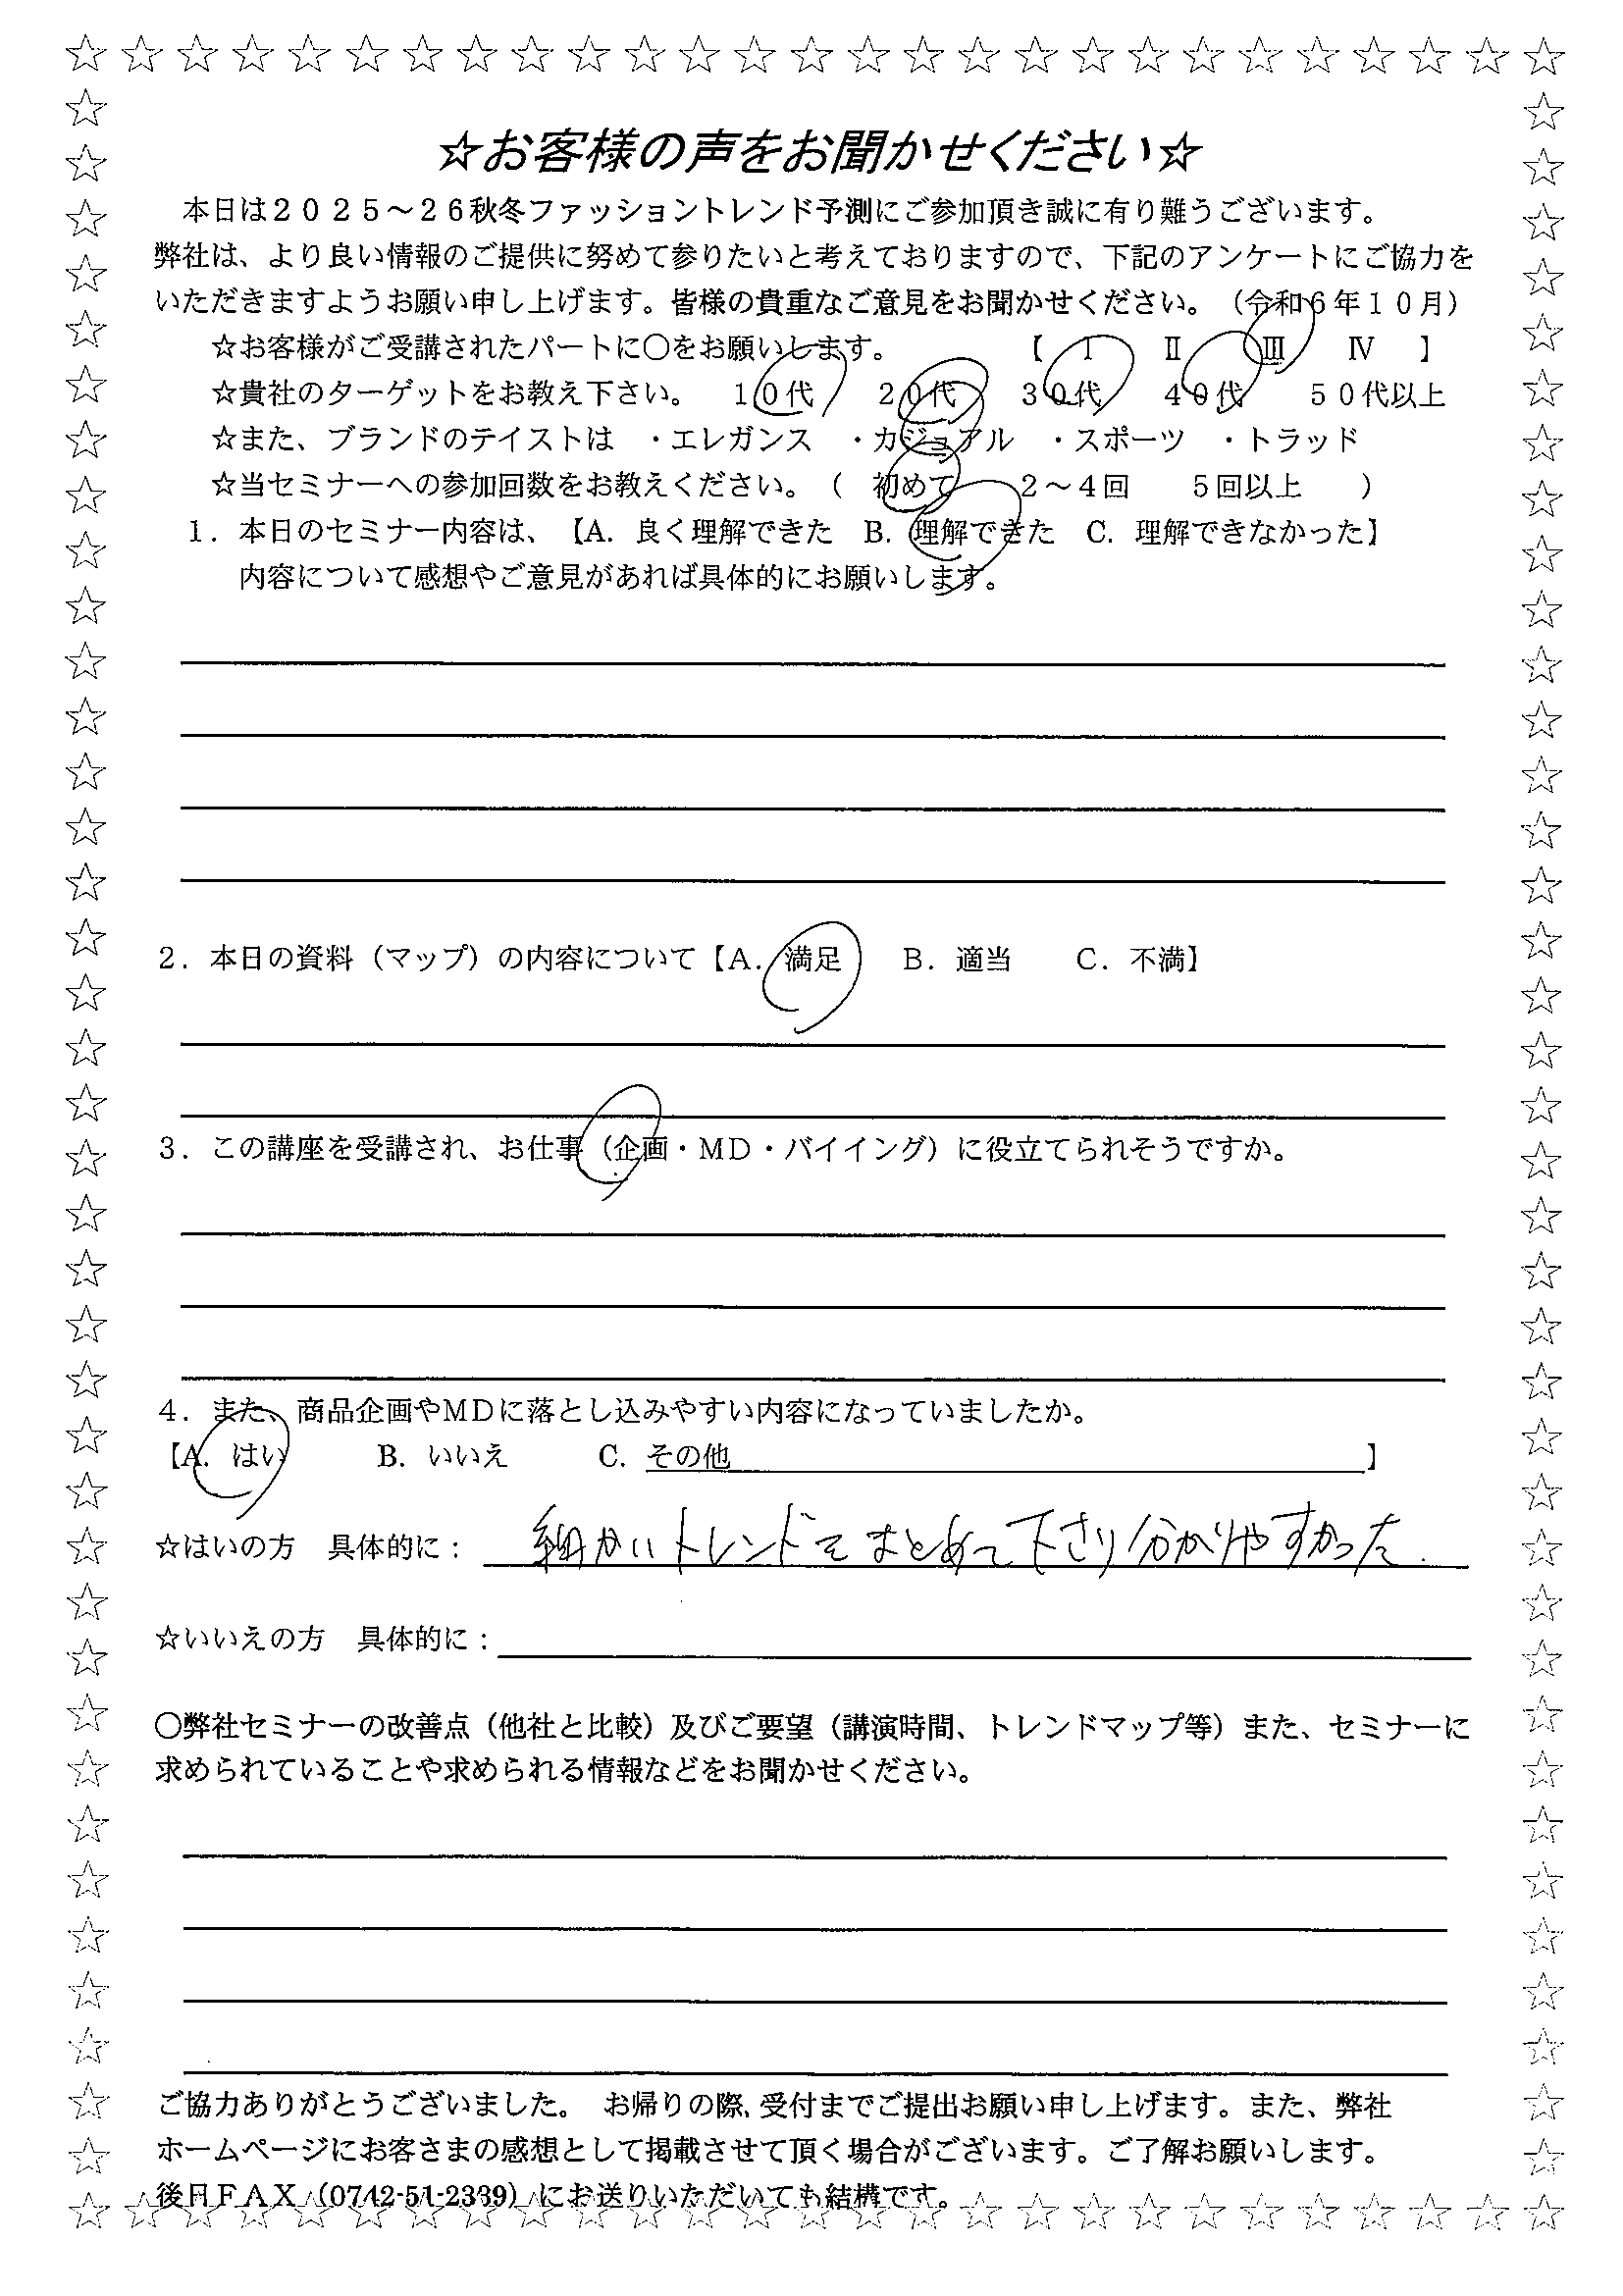 ☆お客様の声をお聞かせください☆
本日は２０２５～２６秋冬ファッショントレンド予測にご参加頂き誠に有り難うございます。
弊社は、より良い情報のご提供に努めて参りたいと考えておりますので、下記のアンケートにご協力を
いただきますようお願い申し上げます。皆様の貴重なご意見をお聞かせください。（令和６年１０月）
☆お客様がご受講されたパートに〇をお願いします。　【　Ⅰ　Ⅱ　Ⅲ　Ⅳ　】
☆貴社のターゲットをお教え下さい。　１０代　２０代　３０代　４０代　５０代以上
☆また、ブランドのテイストは　・エレガンス　・カジュアル　・スポーツ　・トラッド
☆当セミナーへの参加回数をお教えください。（　初めて　２～４回　５回以上　）
１．本日のセミナー内容は、【A．良く理解できた　B．理解できた　C．理解できなかった】
内容について感想やご意見があれば具体的にお願いします。
２．本日の資料（マップ）の内容について【A．満足　B．適当　C．不満】
３．この講座を受講され、お仕事（企画・MD・バイイング）に役立てられそうですか。
４．また、商品企画やMDに落とし込みやすい内容になっていましたか。
【A．はい　B．いいえ　C．その他　】
☆はいの方　具体的に：　細かいトレンドをまとめて下さり分かりやすかった.
☆いいえの方　具体的に：
〇弊社セミナーの改善点（他社と比較）及びご要望（講演時間、トレンドマップ等）また、セミナーに
求められていることや求められる情報などをお聞かせください。
ご協力ありがとうございました。　お帰りの際､受付までご提出お願い申し上げます。また、弊社
ホームページにお客さまの感想として掲載させて頂く場合がございます。ご了解お願いします。
後日ＦＡＸ（0742-51-2339）にお送りいただいても結構です。